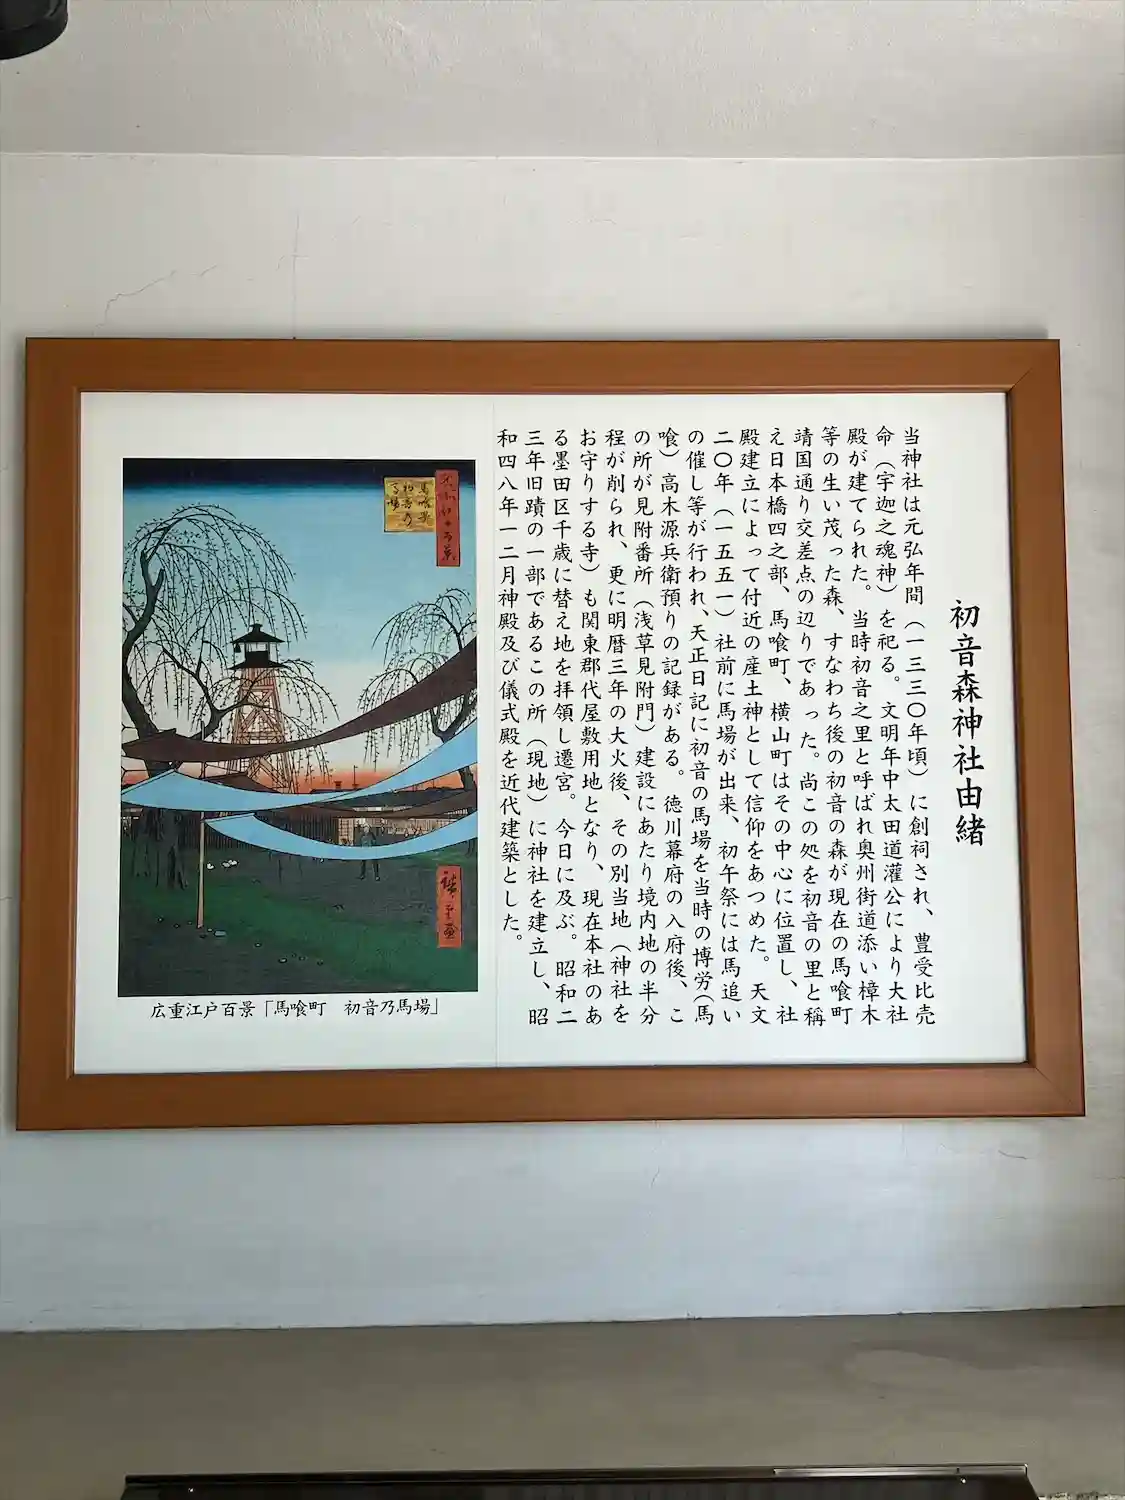 初音森神社由緒
当神社は元弘年間（一三三〇年頃）に創祠され、豊受比売
命（宇迦之魂神）を祀る。文明年中太田道灌公により大社
殿が建てられた。当時初音之里と呼ばれ奥州街道添い樟木
等の生い茂った森、すなわち後の初音の森が現在の馬喰町
靖国通り交差点の辺りであった。尚この処を初音の里と称
え日本橋四之部、馬喰町、横山町はその中心に位置し、社
殿建立によって付近の産土神として信仰をあつめた。天文
二〇年（一五五一）社前に馬場が出来、初午祭には馬追い
の催し等が行われ、天正日記に初音の馬場を当時の博労（馬
喰）高木源兵衛預りの記録がある。徳川幕府の入府後、こ
の所が見附番所（浅草見附門）建設にあたり境内地の半分
程が削られ、更に明暦三年の大火後、その別当地（神社を
お守りする寺）も関東郡代屋敷用地となり、現在本社のあ
る墨田区千歳に替え地を拝領し遷宮。今日に及ぶ。昭和二
三年旧蹟の一部であるこの所（現地）に神社を建立し、昭
和四八年一二月神殿及び儀式殿を近代建築とした。
広重画
広重江戸百景「馬喰町　初音乃馬場」